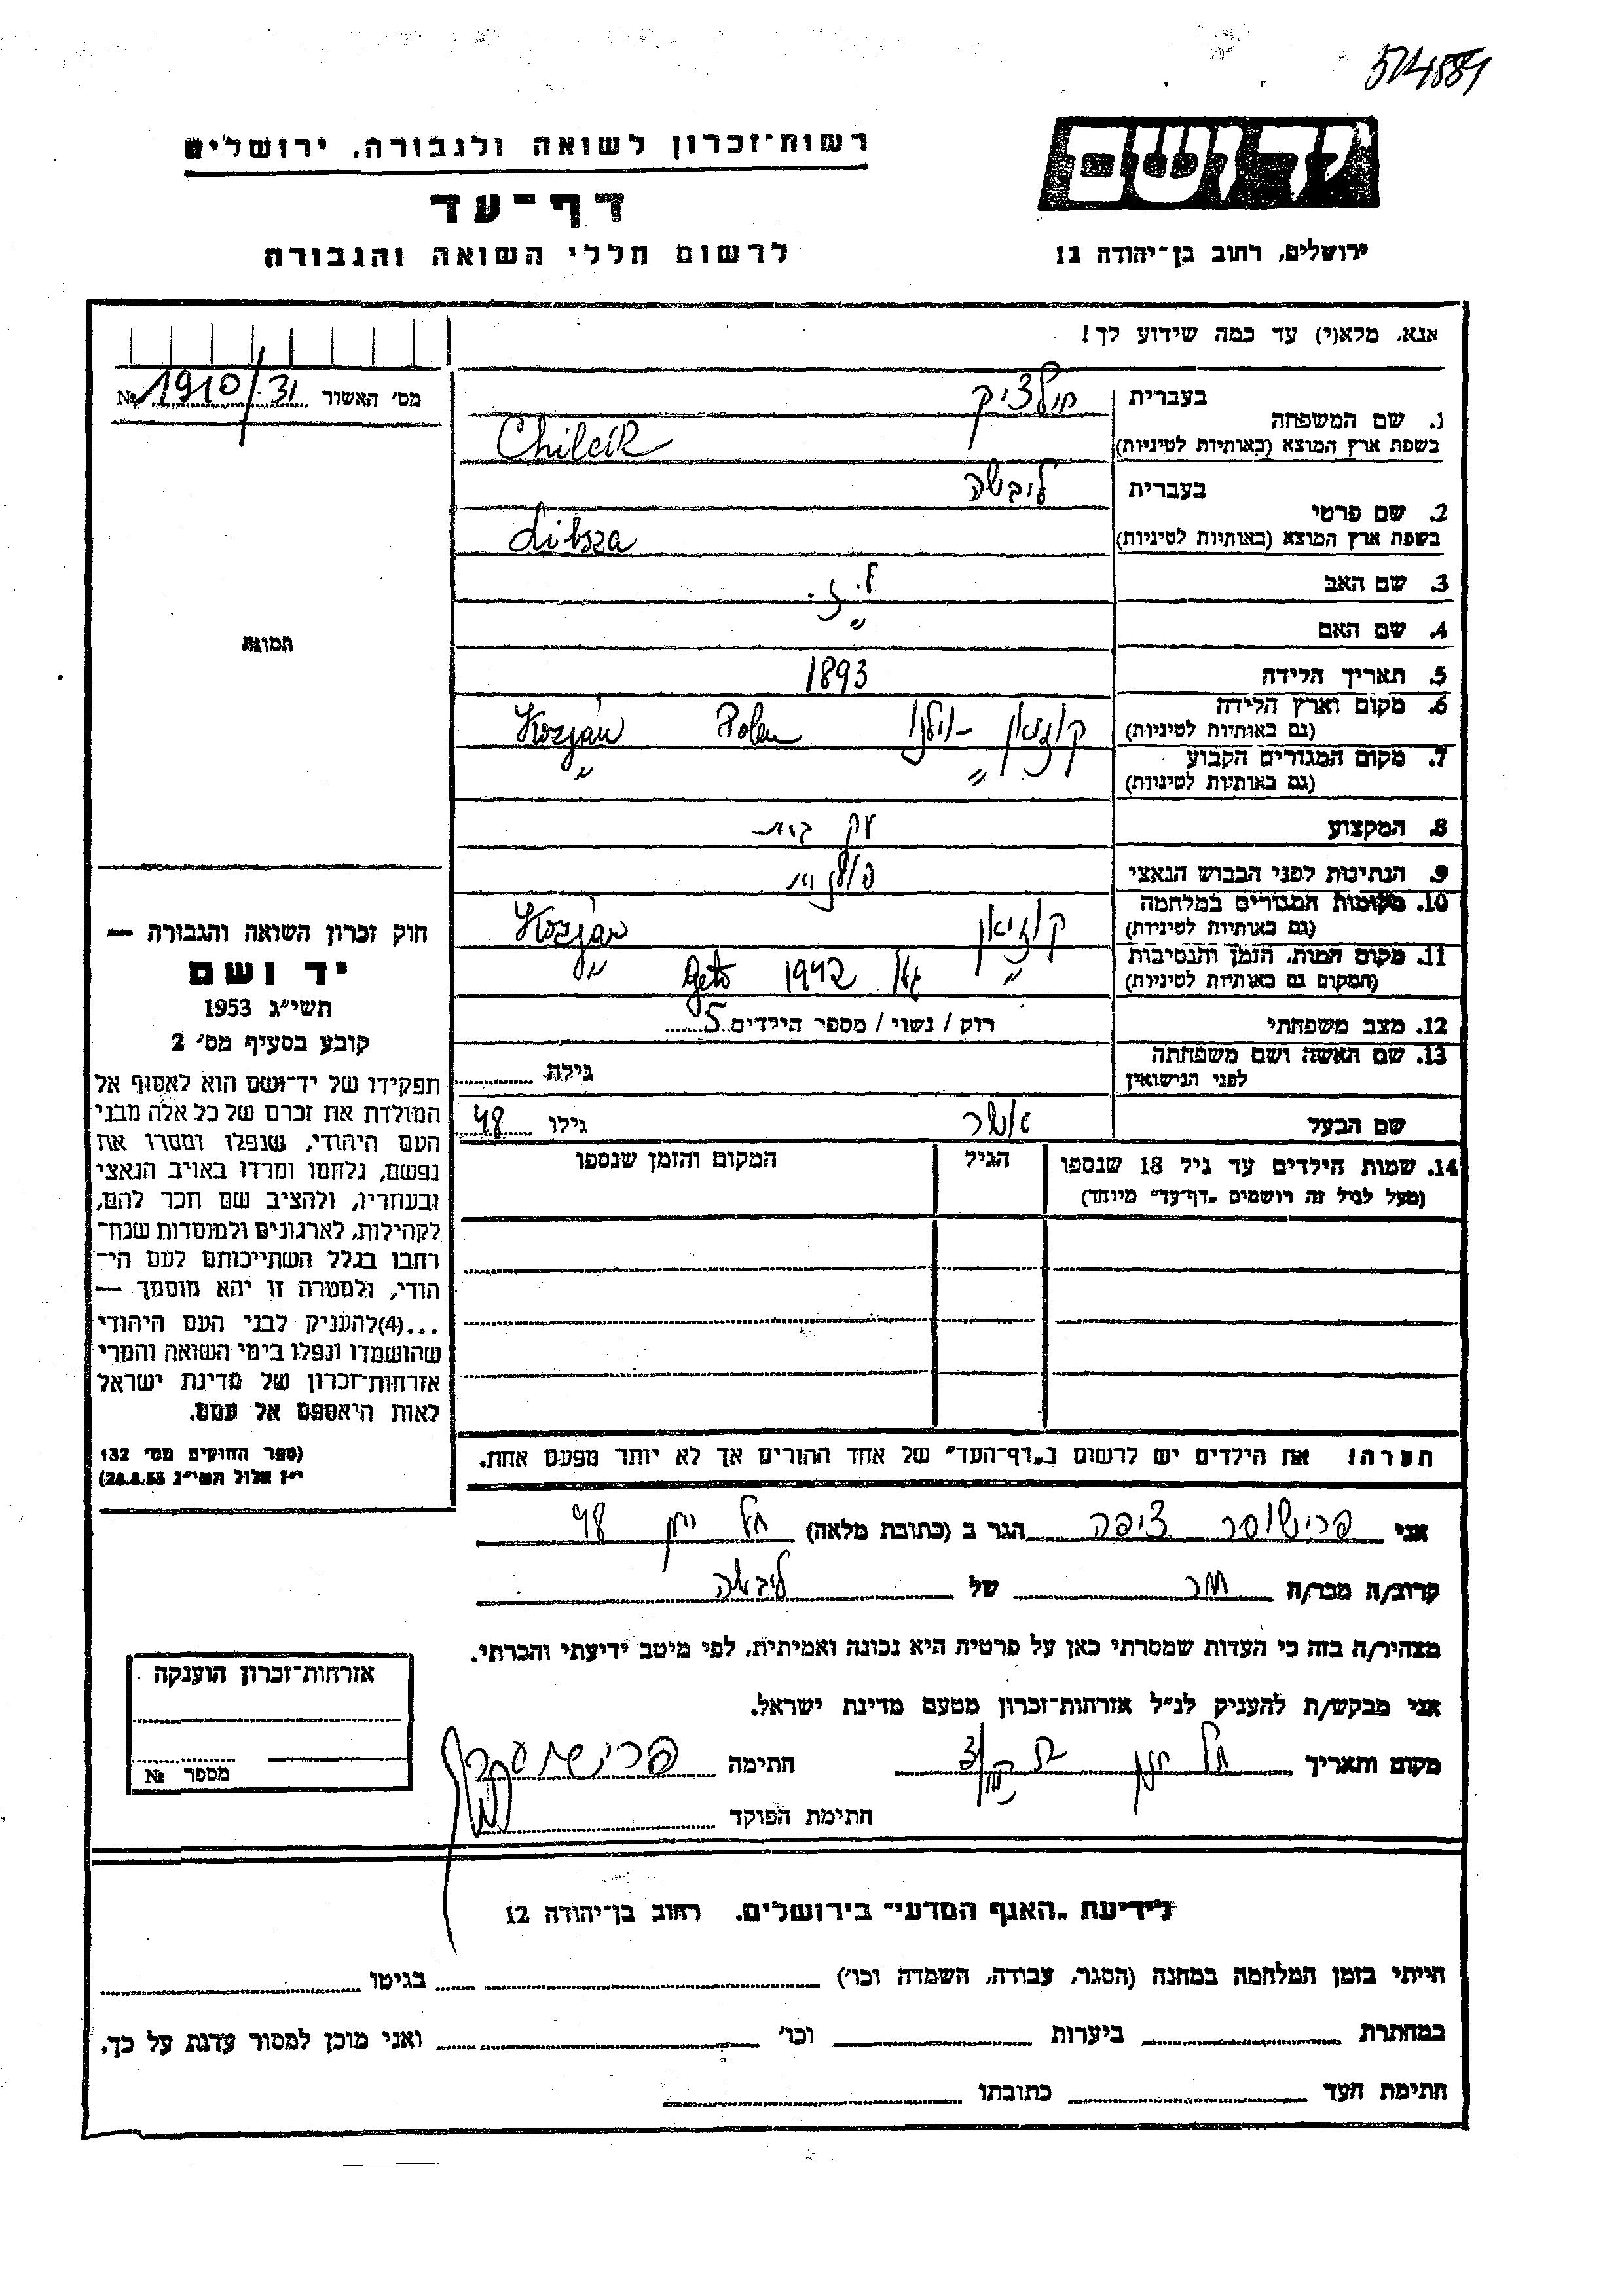 רשות־זכרון לשואה ולגבורה, ירושלים
דף־עד
לרשום חללי השואה והגבורה
ירושלים, רחוב בן־יהודה 12
אנא, מלא(י) עד כמה שידוע לך!
מס׳ האשור 1910/31 №
1. שם המשפחה
בעברית חולציק
בשפת ארץ המוצא (באותיות לטיניות) Chilcik
2. שם פרטי
בעברית ליבשה
בשפת ארץ המוצא (באותיות לטיניות) Libsza
3. שם האב ל. י.
4. שם האם "
5. תאריך הלידה 1893
6. מקום וארץ הלידה
(גם באותיות לטיניות) קוזיאן – וילנו Polen Kozjan
7. מקום המגורים הקבוע
(גם באותיות לטיניות) " "
8. המקצוע עק׳ בית
9. הנתינות לפני הכבוש הנאצי פולנית
10. מקומות המגורים במלחמה
(גם באותיות לטיניות) קוזיאן Kozjan
11. מקום המות, הזמן והנסיבות
(המקום גם באותיות לטיניות) " 1942 Geto "
12. מצב משפחתי רוק / נשוי / מספר הילדים 5
13. שם האשה ושם משפחתה
לפני הנישואין גילה
שם הבעל אשר גילו 48
14. שמות הילדים עד גיל 18 שנספו
(מעל לגיל זה רושמים „דף־עד״ מיוחד)
הגיל
המקום והזמן שנספו
תמונה
חוק זכרון השואה והגבורה —
יד ושם
תשי״ג 1953
קובע בסעיף מס׳ 2
תפקידו של יד־ושם הוא לאסוף אל
המולדת את זכרם של כל אלה מבני
העם היהודי, שנפלו ומסרו את
נפשם, נלחמו ומרדו באויב הנאצי
ובעוזריו, ולהציב שם וזכר להם,
לקהילות, לארגונים ולמוסדות שנח־
רבו בגלל השתייכותם לעם הי־
הודי, ולמטרה זו יהא מוסמך —
...(4) להעניק לבני העם היהודי
שהושמדו ונפלו בימי השואה והמרי
אזרחות־זכרון של מדינת ישראל
לאות היאספם אל עמם.
(ספר החוקים מס׳ 132
י״ז אלול תשי״ג 28.8.53)
הערה! את הילדים יש לרשום ב„דף־העד״ של אחד ההורים אך לא יותר מפעם אחת.
אני פרישוסר ציפה הגר ב (כתובת מלאה) 48
קרוב/ה מכר/ה מכר של ליבשה
מצהיר/ה בזה כי העדות שמסרתי כאן על פרטיה היא נכונה ואמיתית, לפי מיטב ידיעתי והכרתי.
אני מבקש/ת להעניק לנ״ל אזרחות־זכרון מטעם מדינת ישראל.
מקום ותאריך חתימה
חתימת הפוקד
אזרחות־זכרון הוענקה
מספר №
לידיעת „האגף המדעי״ בירושלים, רחוב בן־יהודה 12
הייתי בזמן המלחמה במחנה (הסגר, עבודה, השמדה וכו׳) בגיטו
במחתרת ביערות וכו׳ ואני מוכן למסור עדות על כך.
חתימת העד כתובתו